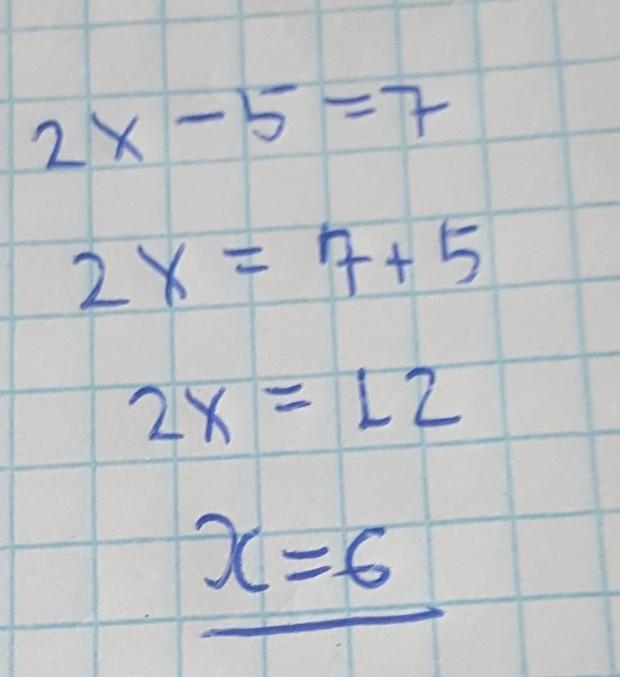 2x - 5 = 7
2x = 7 + 5
2x = 12
x = 6